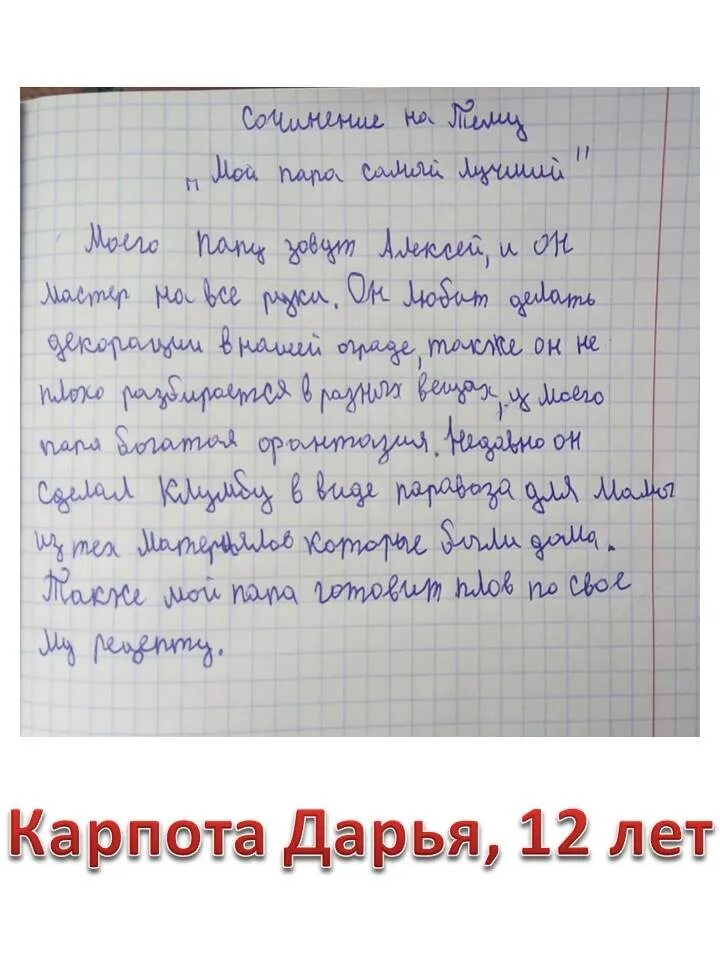 Сочинение на Тему
„Мой папа самый лучший"
Моего папу зовут Алексей, и он
мастер на все руки. Он любит делать
декорации в нашей ограде, также он не
плохо разбирается в разных вещах, у моего
папа богатая фантазия. Недавно он
сделал клумбу в виде паравоза для Мамы
из тех Матерьялов которые были дома.
Также мой папа готовит плов по свое
му рецепту.
Карпота Дарья, 12 лет